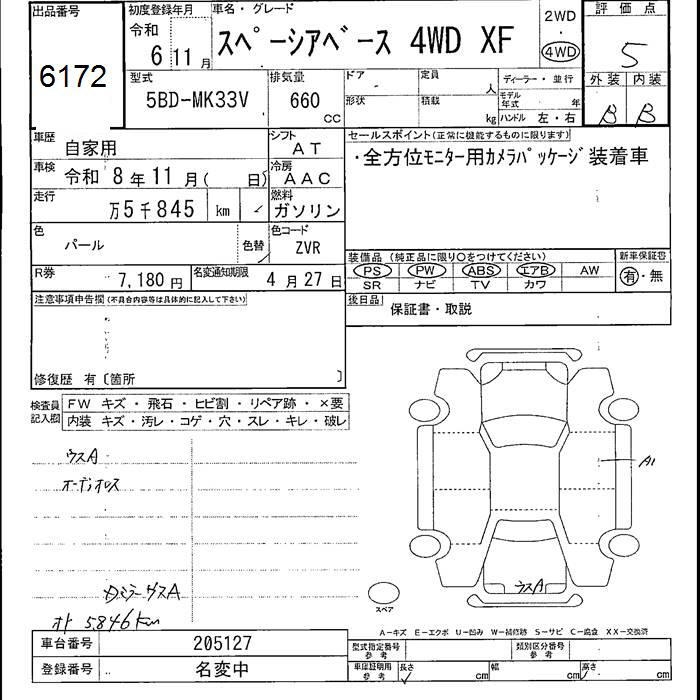 出品番号
6172
初度登録年月
令和
6 11月
車名・グレード
スペーシアベース 4WD XF
2WD
4WD
評価点
5
外装 内装
B B
型式
5BD-MK33V
排気量
660
CC
ドア
定員
人
形状
積載
kg
ディーラー・並行
モデル年式
年
ハンドル 左・右
車歴
自家用
シフト
AT
車検
令和 8年11月( 日)
冷房
AAC
走行
万5千845 km
燃料
ガソリン
色
パール
色替
色コード
ZVR
R券
7,180円
名変通知期限
4月27日
セールスポイント(正常に機能するものに限ります)
・全方位モニター用カメラパッケージ装着車
装備品(純正品に限り○をつけてください)
PS PW ABS エアB AW
SR ナビ TV カワ
新車保証書
有・無
後日品
保証書・取説
注意事項申告欄(不具合内容等は具体的に記入して下さい)
修復歴 有〔箇所 〕
検査員記入欄
FW キズ・飛石・ヒビ割・リペア跡・×要
内装 キズ・汚レ・コゲ・穴・スレ・キレ・破レ
ウスA
オーディオレス
5846km
A1
ウスA
スペア
A-キズ E-エクボ U-凹み W-補修跡 S-サビ C-腐食 XX-交換済
車台番号
205127
登録番号
名変中
型式指定番号
参考
類別区分番号
参考
車庫証明用
参考
長さ cm
幅 cm
高さ cm